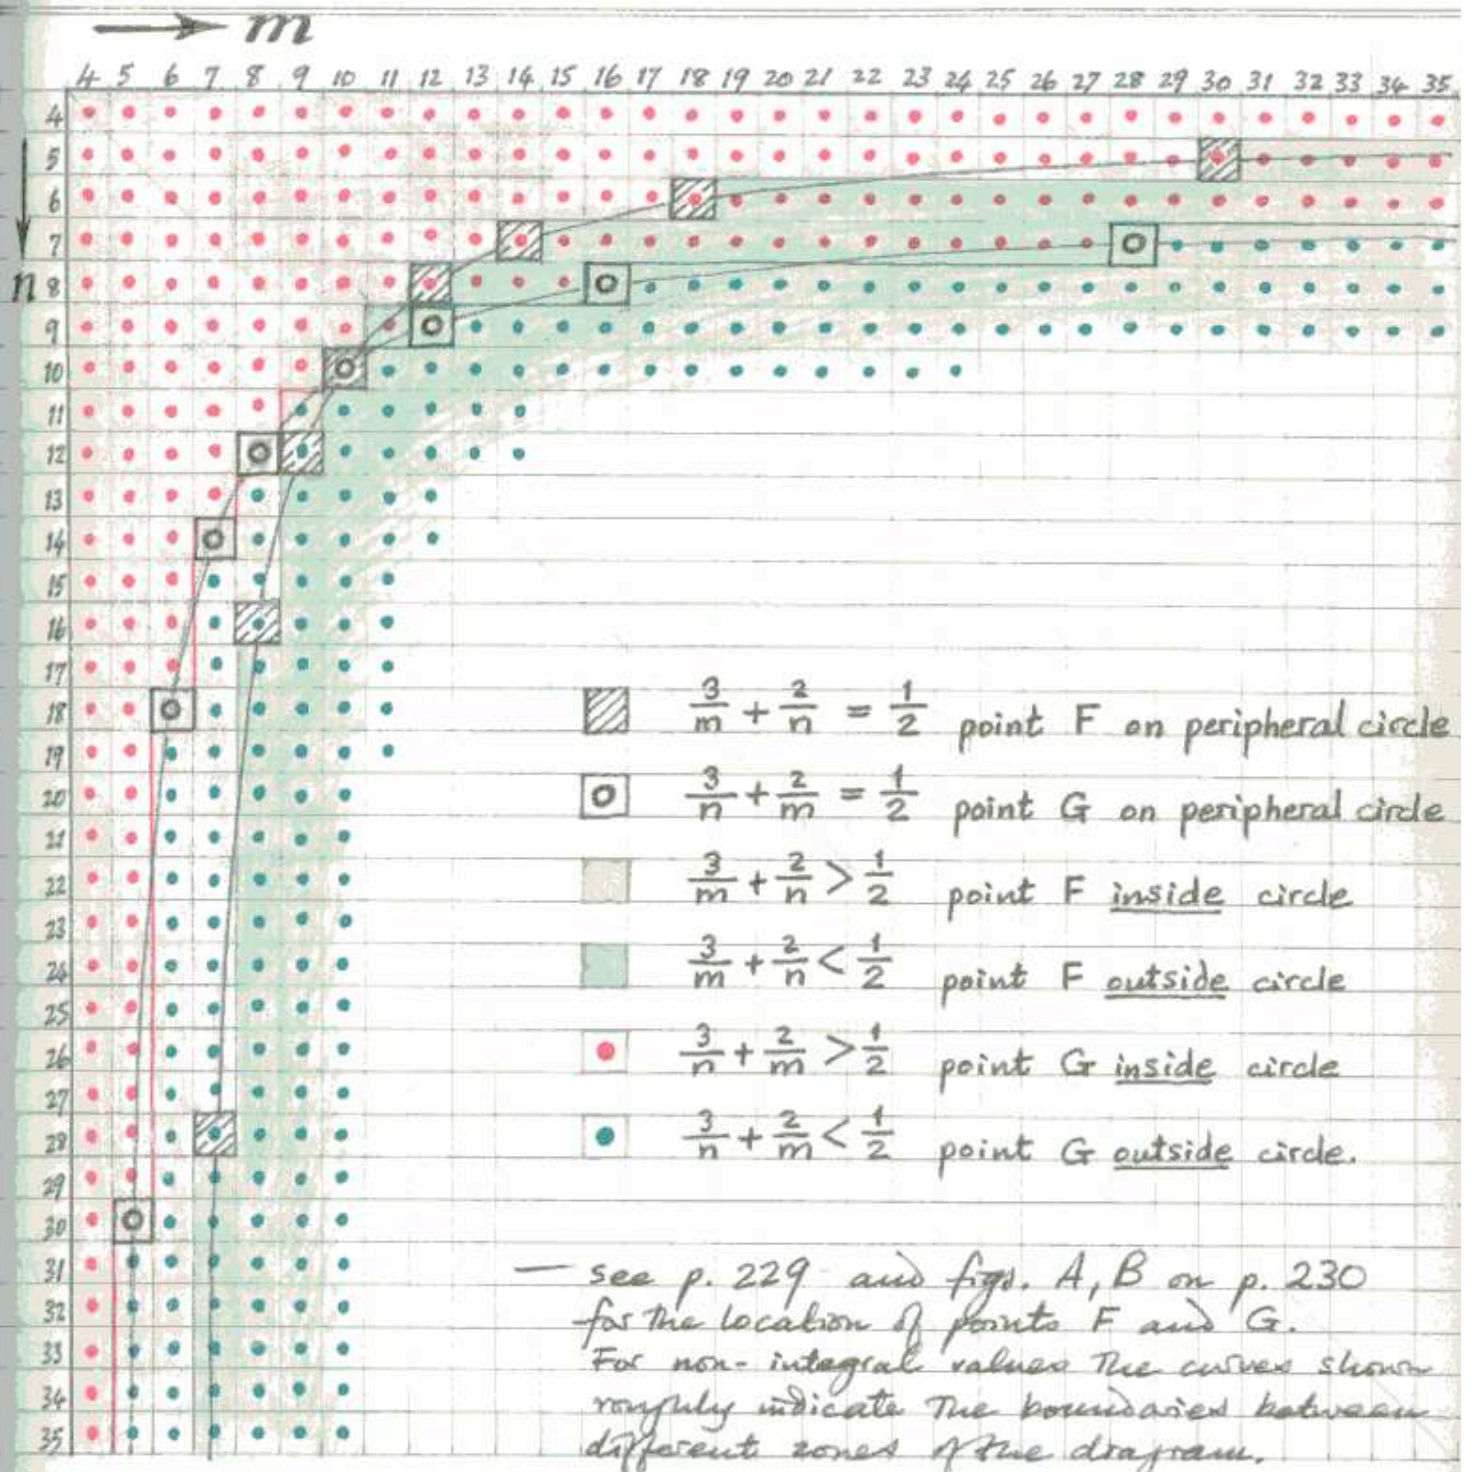 → m
4 5 6 7 8 9 10 11 12 13 14 15 16 17 18 19 20 21 22 23 24 25 26 27 28 29 30 31 32 33 34 35
4
5
6
7
n 8
9
10
11
12
13
14
15
16
17
18
19
20
21
22
23
24
25
26
27
28
29
30
31
32
33
34
35
3/m + 2/n = 1/2 point F on peripheral circle
3/n + 2/m = 1/2 point G on peripheral circle
3/m + 2/n > 1/2 point F inside circle
3/m + 2/n < 1/2 point F outside circle
3/n + 2/m > 1/2 point G inside circle
3/n + 2/m < 1/2 point G outside circle.
— see p. 229 and figs. A, B on p. 230
for the location of points F and G.
For non-integral values the curves shown
roughly indicate the boundaries between
different zones of the diagram.